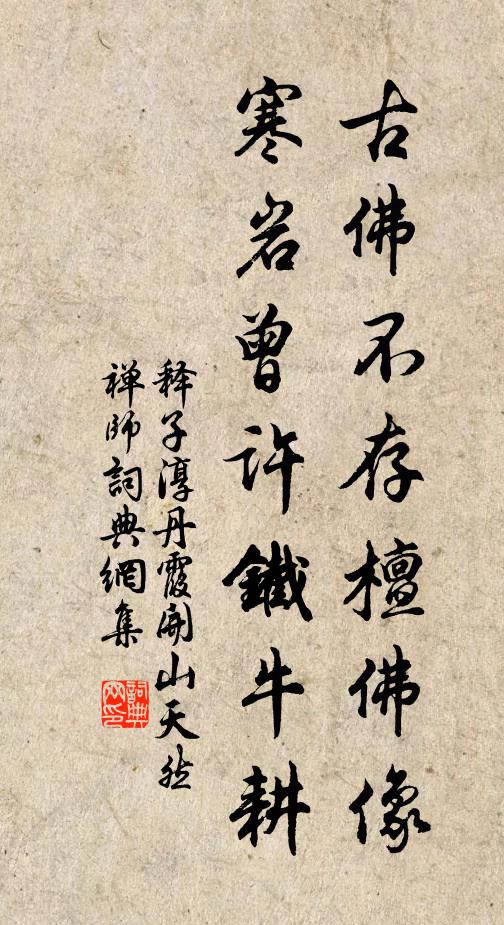 古佛不存檀佛像
寒岩曾許鐵牛耕
释子淳丹霞開山天然
禅師詞典網集
詞典网印